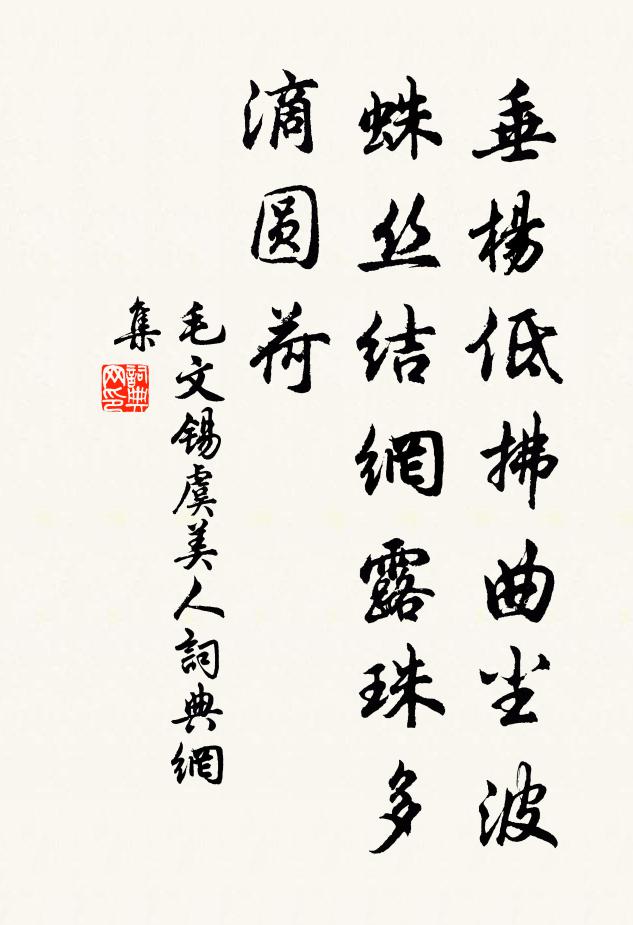 垂楊低拂曲尘波
蛛丝结網露珠多
滴圆荷
毛文锡虞美人詞典網
集
詞典
网印